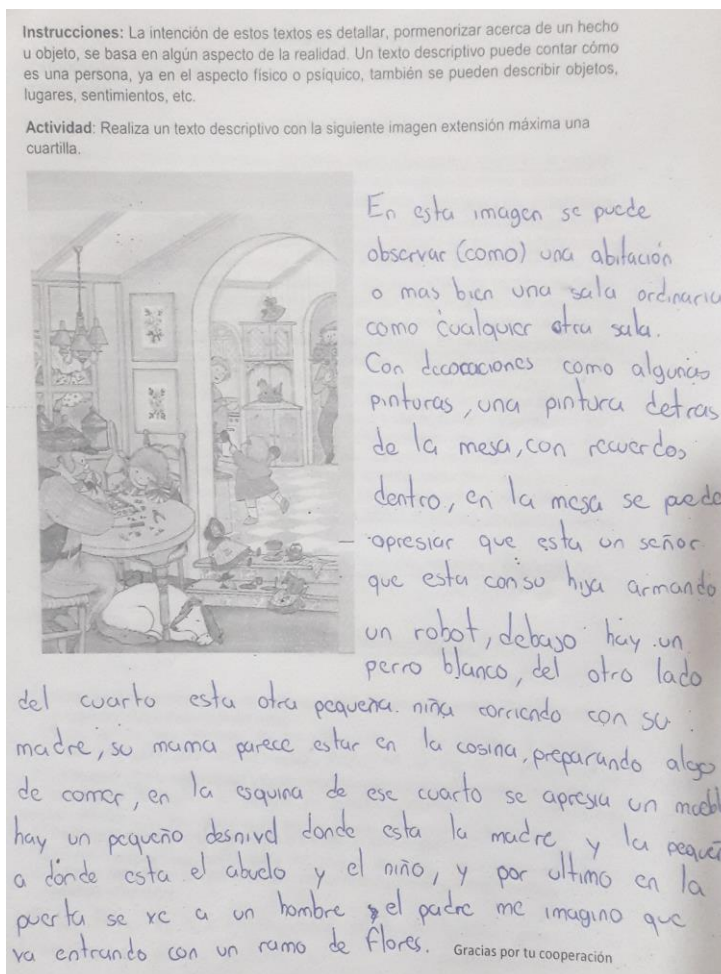 Instrucciones: La intención de estos textos es detallar, pormenorizar acerca de un hecho
u objeto, se basa en algún aspecto de la realidad. Un texto descriptivo puede contar cómo
es una persona, ya en el aspecto físico o psíquico, también se pueden describir objetos,
lugares, sentimientos, etc.
Actividad: Realiza un texto descriptivo con la siguiente imagen extensión máxima una
cuartilla.
En esta imagen se puede
observar (como) una abitación
o mas bien una sala ordinaria
como cualquier otra sala.
Con decoraciones como algunas
pinturas, una pintura detras
de la mesa, con recuerdos
dentro, en la mesa se puede
apresiar que esta un señor
que esta con su hija armando
un robot, debajo hay un
perro blanco, del otro lado
del cuarto esta otra pequeña niña corriendo con su
madre, su mama parece estar en la cosina, preparando algo
de comer, en la esquina de ese cuarto se apresia un muebl
hay un pequeño desnivel donde esta la madre y la pequeñ
a donde esta el abuelo y el niño, y por ultimo en la
puerta se ve a un hombre el padre me imagino que
va entrando con un ramo de flores.
Gracias por tu cooperación